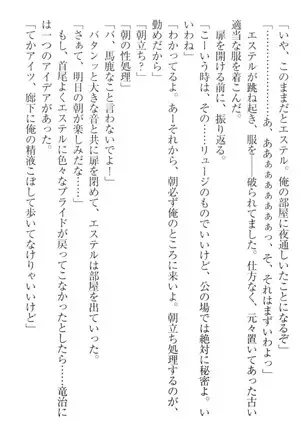 「いや、このままだとエステル。俺の部屋に夜通しいたことになるぞ」
「……………あ、あああぁぁぁぁぁぁっ、そ、それはまずいわよっ」
エステルが跳ね起き、服を――破られてました。仕方なく、元々置いてあった古い
適当な服を着こんだ。
扉を開ける前に、振り返る。
「こーいう時は、その……リュージのものでいいけど、公の場では絶対に秘密よ。い
いわね」
「わかってるよ。あーそれから、朝必ず俺のところに来いよ。朝立ち処理するのが、
勤めだから」
「朝立ち？」
「朝の性処理」
「バ、馬鹿なこと言わないでよー」
バタンッと大きな音と共に扉を閉めて、エステルは部屋を出ていった。
「さぁて、明日の朝が楽しみだな……」
もし、首尾よくエステルに色々なプライドが戻ってこなかったとしたら……竜治に
は一つのアイデアがあった。
「てかアイツ、廊下に俺の精液こぼして歩いてなけりゃいいけど」